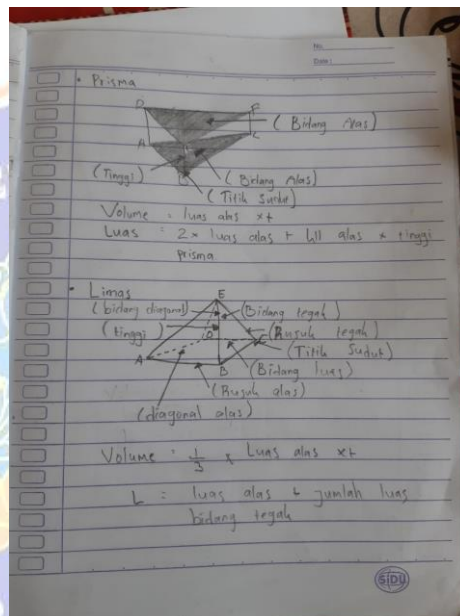 No.
Date :
• Prisma
D F
(Bidang Atas)
A C
(Tinggi) (Bidang Alas)
(Titik Sudut)
Volume : luas alas x t
Luas : 2 x luas alas + kll alas x tinggi
prisma
• Limas
E
(bidang diagonal) (Bidang tegak)
(tinggi) (Rusuk tegak)
D (Titik Sudut)
A B (Bidang luas)
(Rusuk alas)
(diagonal alas)
Volume : 1/3 x Luas alas x t
L = luas alas + jumlah luas
bidang tegak
SIDU